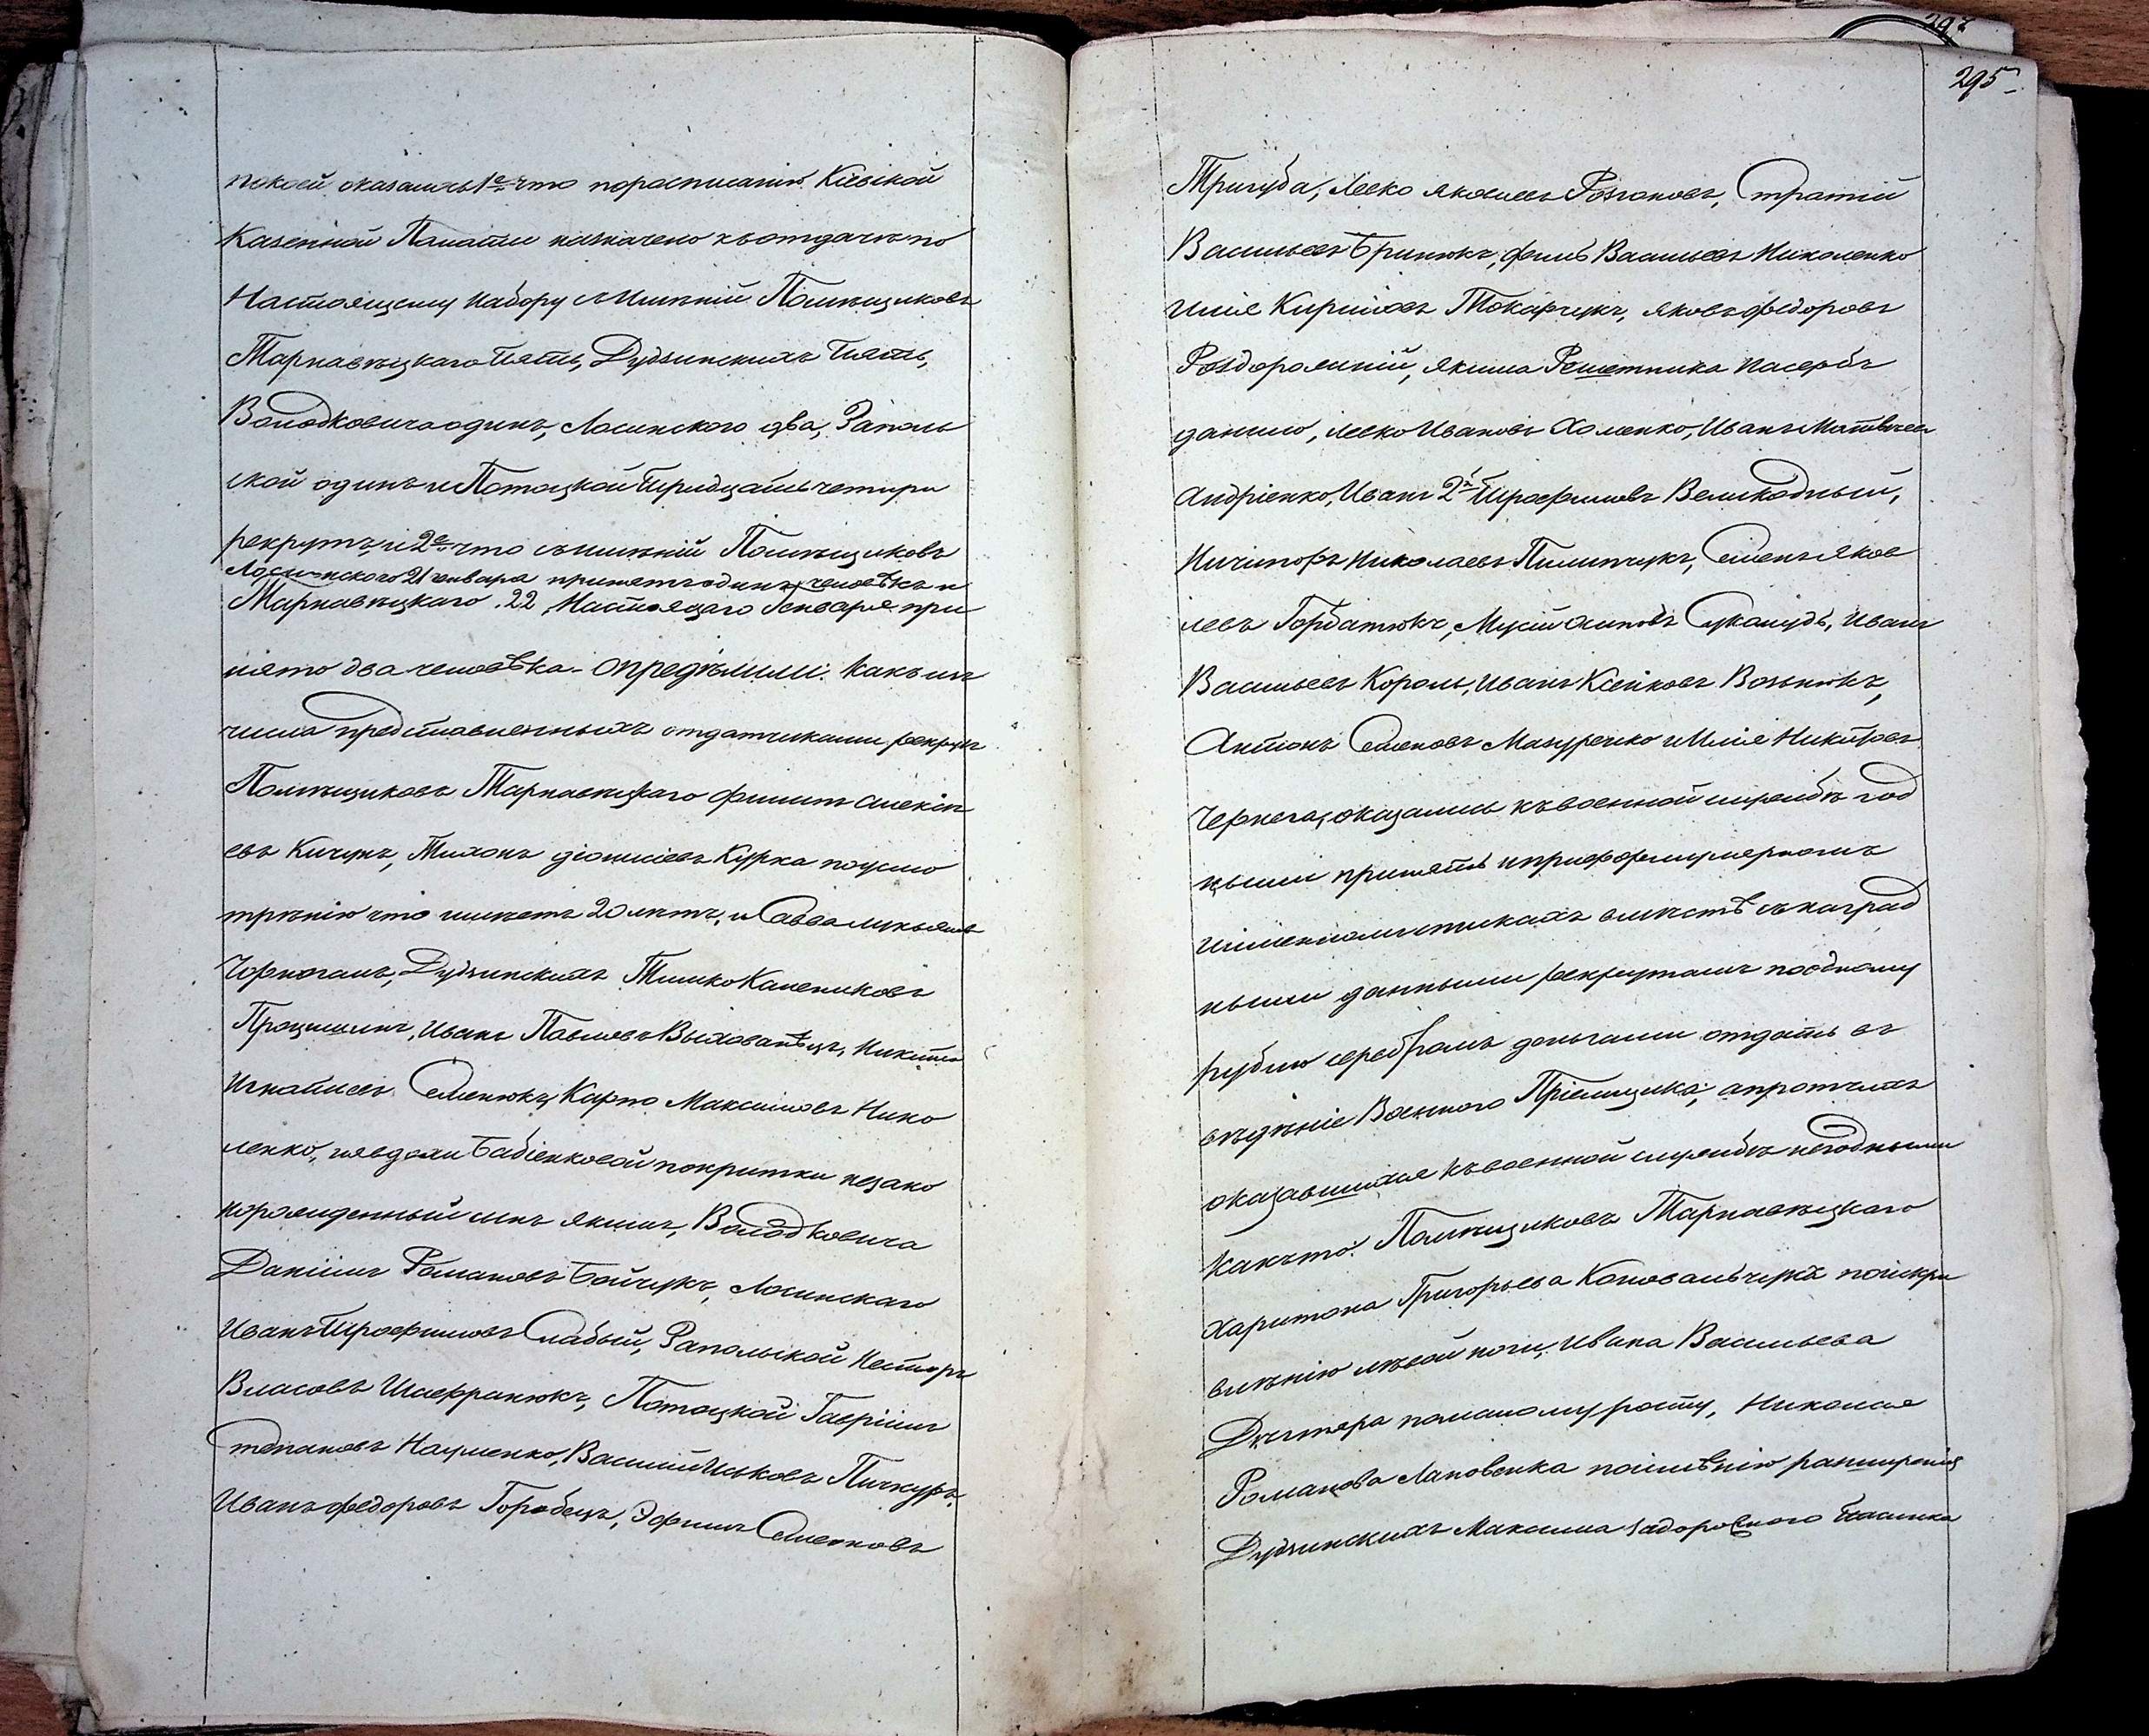 покоей оказалось 1е что поросписанію Кіевской
Казенной Палаты назначено къотдачѣ по
Настоящему набору сИмѣній Помѣщиковъ
Тарнавѣцкаго пять, Дудзинскихъ пять,
Володковича одинъ, Лосинского два, Заполь
ской одинъ и Потоцкой тридцать четыри
рекрутъ и 2е что сьимѣній Помѣщиковъ
Лосинского 21 генвара принятъ одинъ человѣкъ и
Тарнавѣцкаго 22 Настоящаго Генваря при
нято два человѣка - опредѣлили: какъ изъ
числа представленныхъ отдатчиками рекрутъ
Помѣщиковъ Тарнавѣцкаго Филипъ Алексѣ
евъ Кичукъ, Тихонъ діонисіевъ Курка поусмо
трѣнію что имѣетъ 20 лѣтъ, и Савва лукьяновъ
Чорноганъ, Дудзинскихъ Тимко Калениковъ
Процишинъ, Иванъ Павловъ Выхованѣцъ, Никита
Игнатіевъ Семенюкъ, Карпо Максимовъ Нико
ленко, иявдохи Бабіенковой покритки незако
норожденный сынъ якимъ, Володковича
Даніилъ Романовъ Бойчукъ, Лосинскаго
Иванъ Трофимовъ Слабый, Запольской Несторъ
Власовъ Шафранюкъ, Потоцкой Гавріилъ
Степановъ Науменко, Василій Иськовъ Пичкуръ,
Иванъ федоровъ Горобецъ, Эфимъ Семеновъ
295
Тригуба, Левко яковлевъ Розгоновъ, Стратій
Васильевъ Бринюкъ, филь Васильевъ Николенко
илія Кириловъ Токарчукъ, яковъ федоровъ
Роздорожній, якима Решетника пасербъ
данило, левко Ивановъ Хоменко, Иванъ Матвѣевъ
Андріенко, Иванъ 2й Трофимовъ Великодный,
Ничипоръ Николаевъ Пилипчукъ, Семенъ яков
левъ Горбатюкъ, Мусій Сукалудъ, Иванъ
Васильевъ Король, Иванъ Возьнюкъ,
Антонъ Семеновъ Мазуренко и Илія Никитовъ
Чернега, оказались къвоенной службѣ год
ными принять иприформулярномъ
имѣстѣ снаград
ными данными рекрутамъ поодному
рублю серебромъ деньгами отдать въ
вѣдѣніе Военного Пріемщика, апротчихъ
оказавшихся къвоенной службѣ негодными
какъто: Помѣщиковъ Тарнавѣцкаго
Харитона Григорьева Коновальчука поискри
вленію лѣвой ноги, Ивана Васильева
помалому росту, Николая
Романова Лановенка поимѣнію расширенія
Дудзинскихъ Максима Задорожного